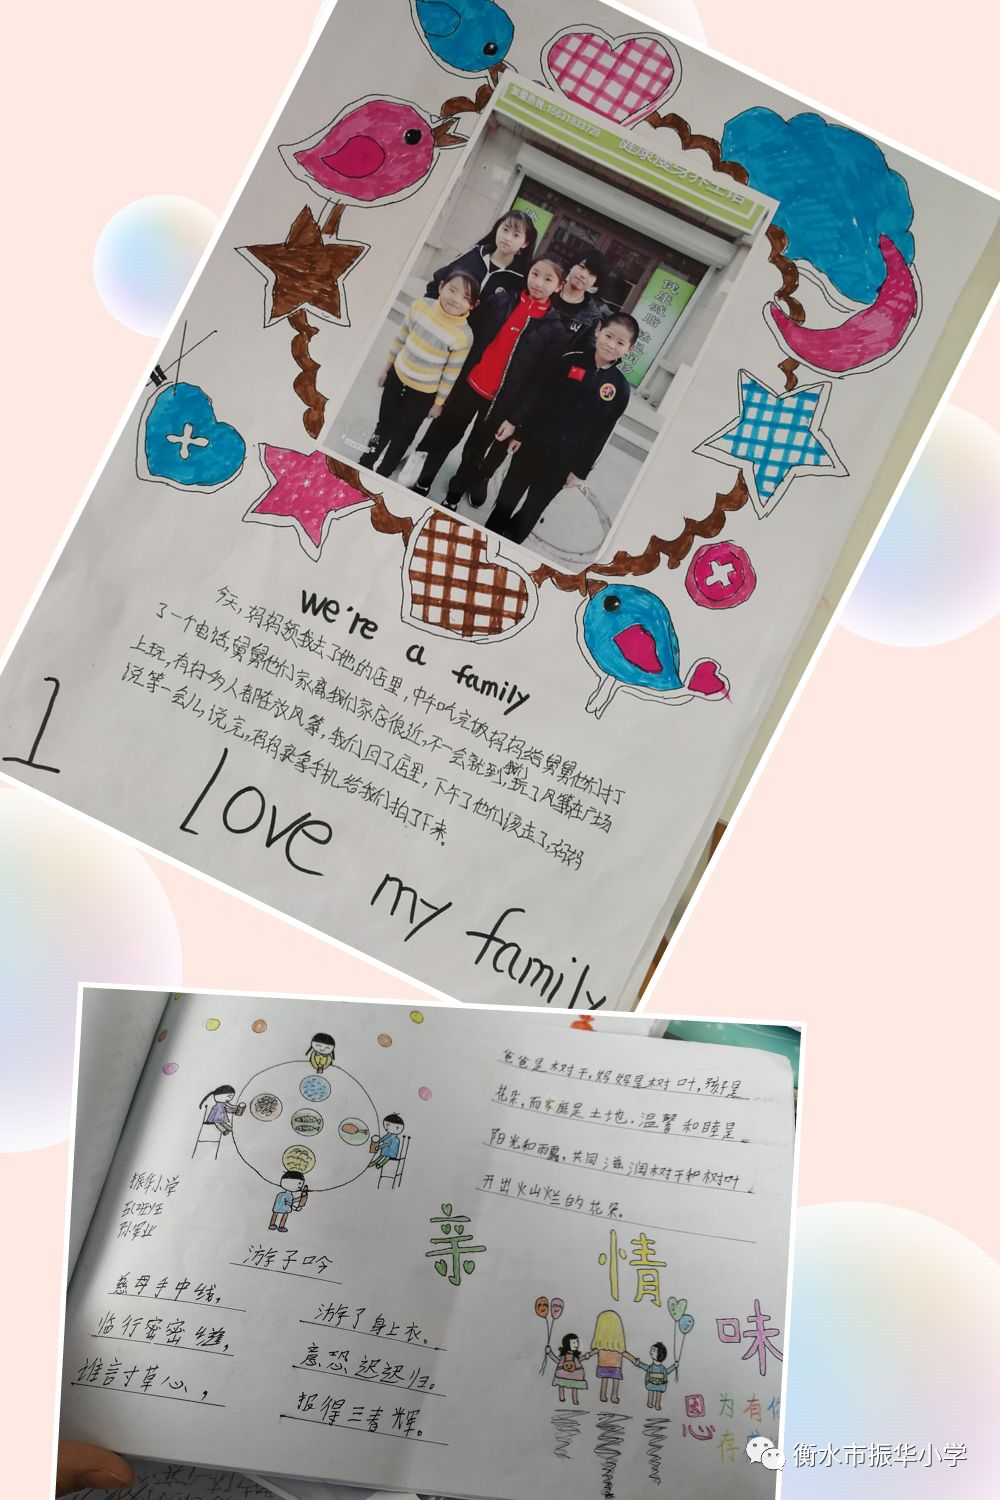 联盟热线:15631833728
健康瘦身养生馆
健康减脂
we're a family
今天,妈妈领我去了他的店里,中午吃完饭妈妈给舅舅他们打
了一个电话,舅舅他们家离我们家店很近,不一会就到,我们玩了风筝在广场
上玩,有好多人都在放风筝,我们回了店里,下午了他们该走了,妈妈
说等一会儿,说完,妈妈就拿手机给我们拍了下来。
I love my family
爸爸是树干,妈妈是树叶,孩子是
花朵,而家庭是土地,温馨和睦是
阳光和雨露,共同滋润树干和树叶
开出火山烂的花朵。
振华小学
孙
业
游子吟
慈母手中线,
游子身上衣。
临行密密缝,
意恐迟迟归。
谁言寸草心,
报得三春辉。
亲情味
因为有你
心存
衡水市振华小学